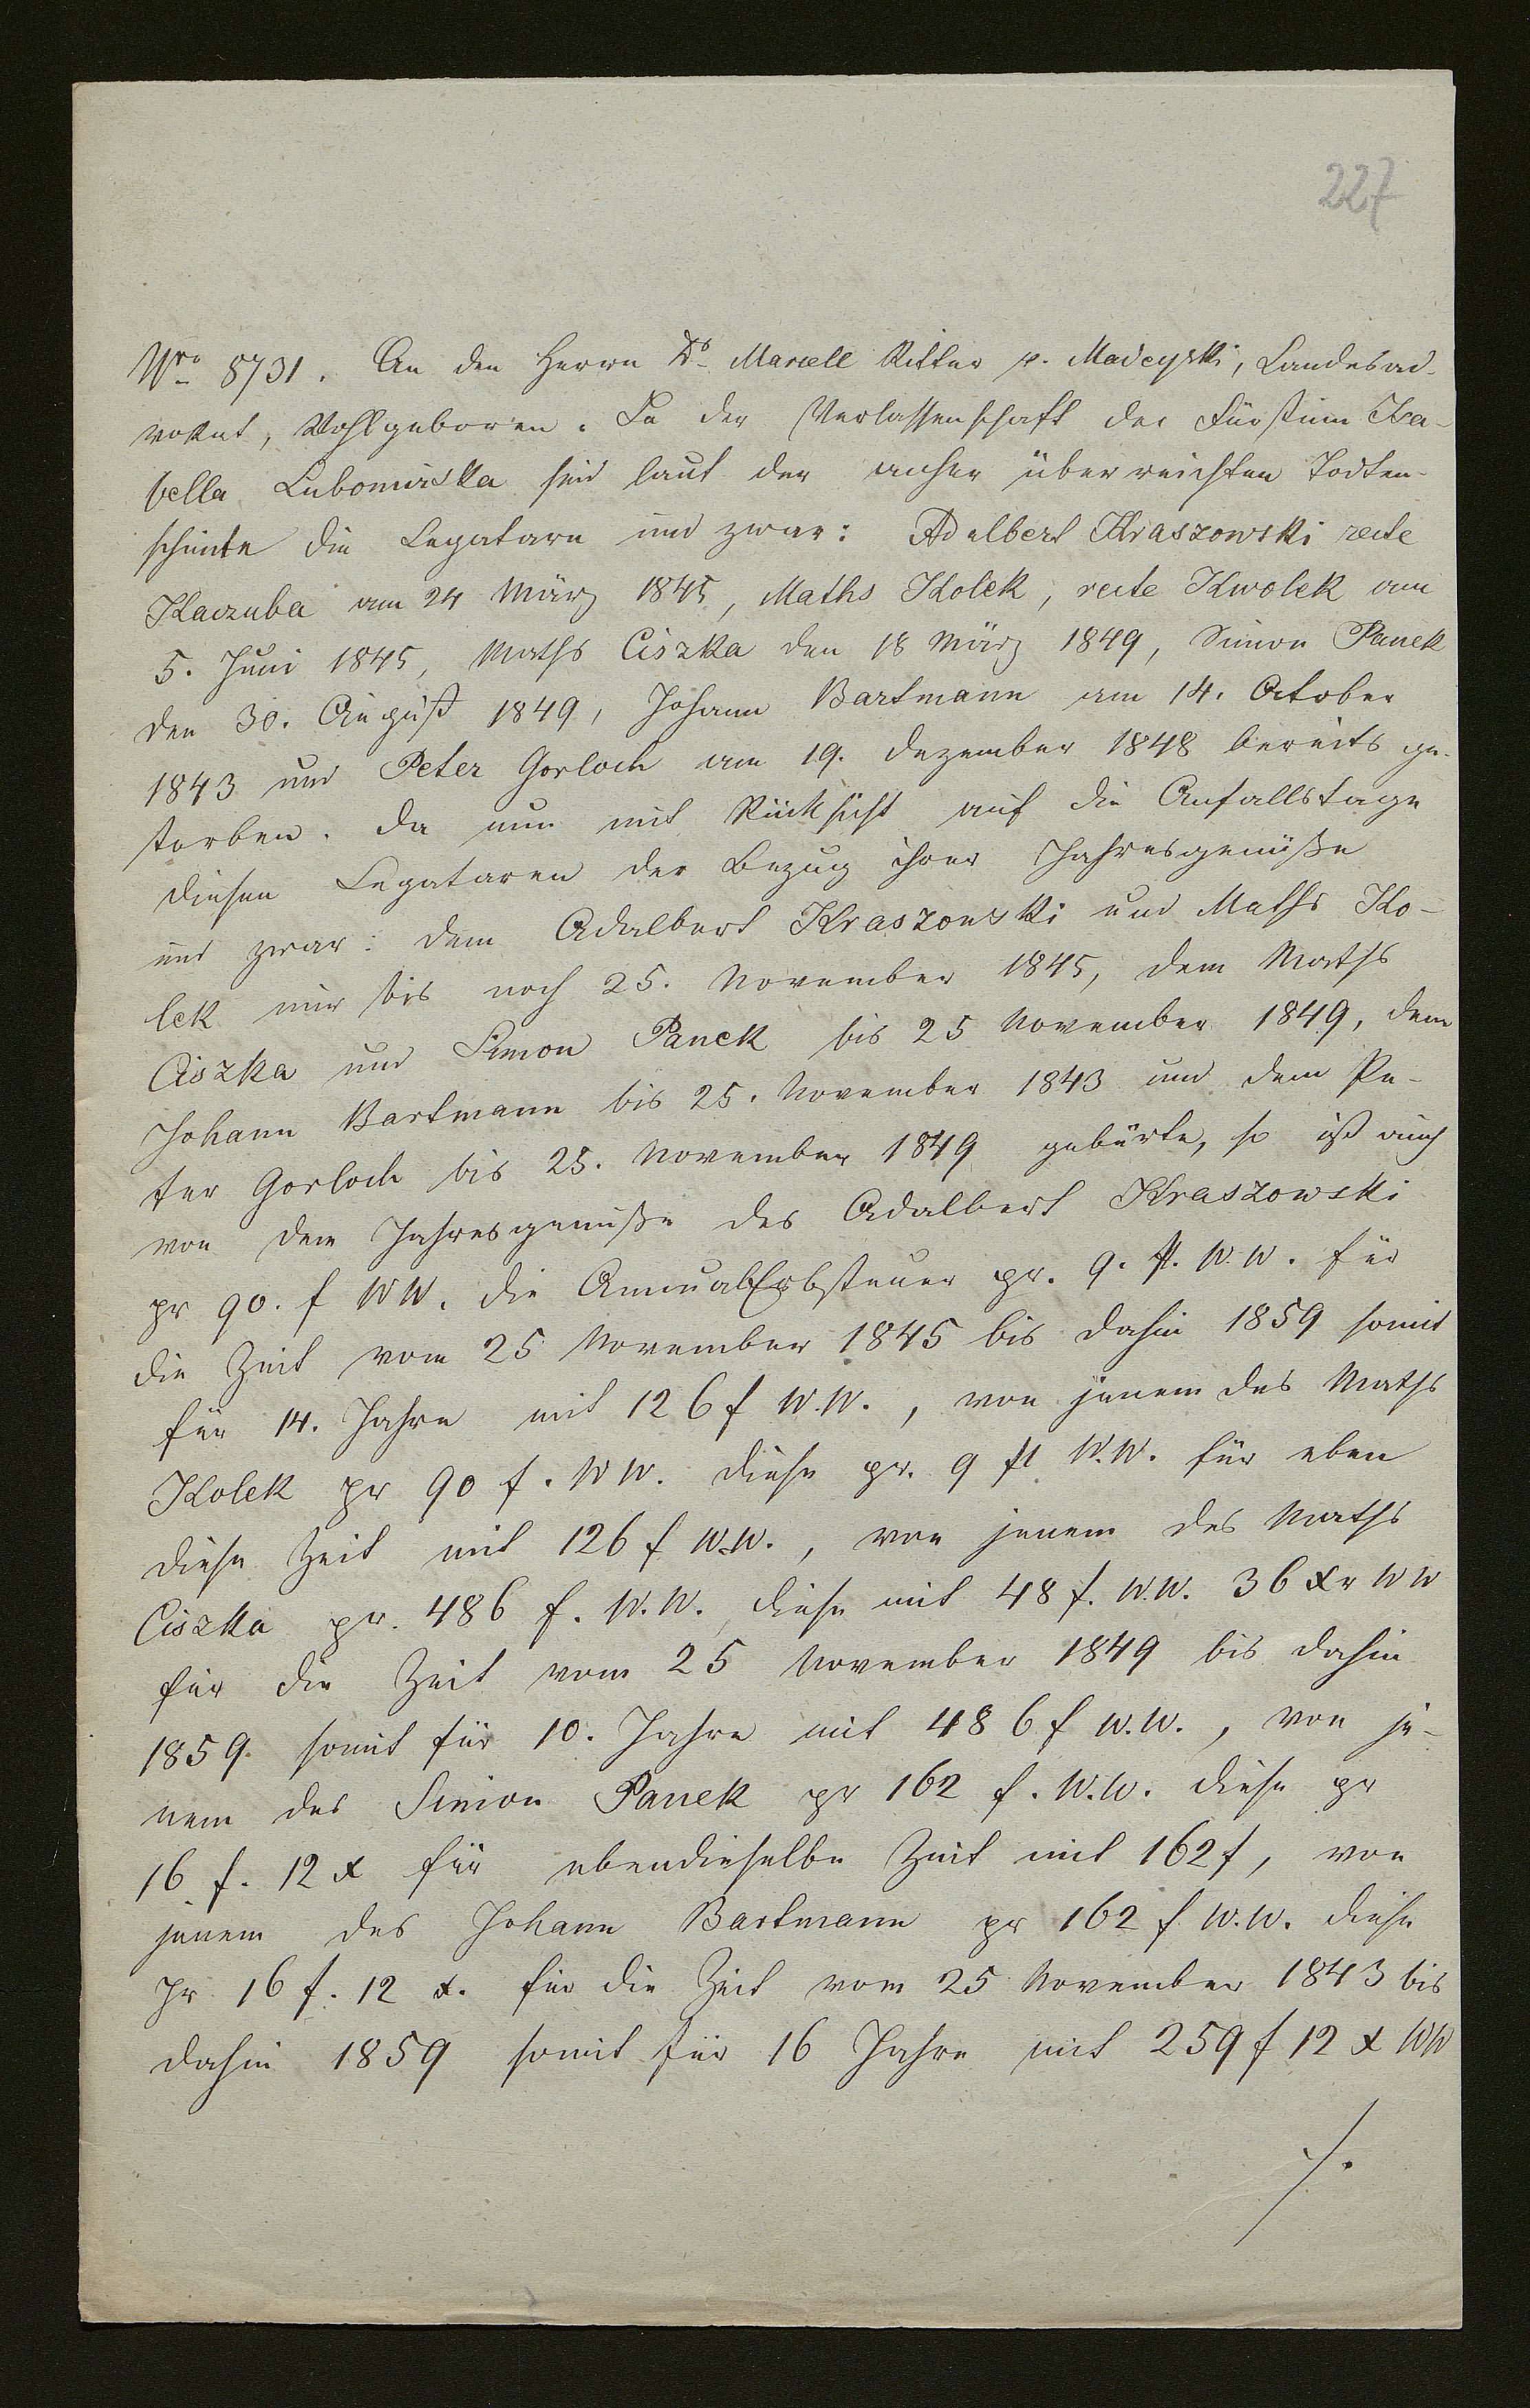 227
Nro 8731. An den Herrn Dr Marcell Ritter v. Madeyski, Landesad-
vokat, Wohlgeboren. In der Verlassenschaft der Fürstinn Isa-
bella Lubomirska sind laut der anher überreichten Todten-
scheine die Legatare und zwar: Adalbert Kraszowski recte
Kaczuba am 24 März 1845, Maths Kolek, recte Kwolek am
5. Juni 1845, Maths Ciszka den 18 März 1849, Simon Panek
den 30. August 1849, Johann Bartmann am 14. October
1843 und Peter Gorloch am 19. Dezember 1848 bereits ge-
storben. Da nun mit Rücksicht auf die Anfallstage
diesen Legataren der Bezug ihrer Jahresgenüße
und zwar: dem Adalbert Kraszowski und Maths Ko-
lek nur bis noch 25. November 1845, dem Maths
Ciszka und Simon Panek bis 25 November 1849, dem
Johann Bartmann bis 25. November 1843 und dem Pe-
ter Gorloch bis 25. November 1849 gebürte, so ist auch
von dem Jahresgenuße des Adalbert Kraszowski
pr 90. f WW. die Annual Erbsteuer pr. 9. fl. W.W. für
die Zeit vom 25 November 1845 bis dahin 1859 somit
für 14. Jahre mit 126 f W.W., von jenem des Maths
Kolek pr 90 f. WW. diese pr. 9 fl W.W. für eben
diese Zeit mit 126 f W.W., von jenem des Maths
Ciszka pr. 486 f. W.W. diese mit 48 f. W.W. 36 xr WW
für die Zeit vom 25 November 1849 bis dahin
1859. somit für 10. Jahre mit 486 f W.W., von je-
nem des Simon Panek pr 162 f. W.W. diese pr
16 f. 12 x für ebendieselbe Zeit mit 162 f, von
jenem des Johann Bartmann pr 162 f W.W. diese
pr 16 f. 12 x. für die Zeit vom 25 November 1843 bis
dahin 1859 somit für 16 Jahre mit 259 f 12 x WW
./.